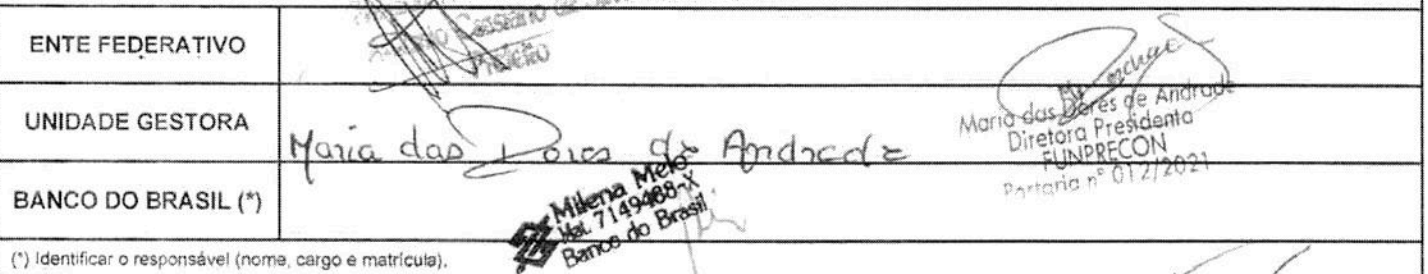 Cassiano de
Prefeito
ENTE FEDERATIVO
UNIDADE GESTORA
Maria das Dores de Andrade
Maria das Dores de Andrade
Diretora Presidenta
FUNPRECON
Portaria nº 012/2021
BANCO DO BRASIL (*)
Milena Melo
Mat. 7149488-X
Banco do Brasil
(*) Identificar o responsável (nome, cargo e matrícula).